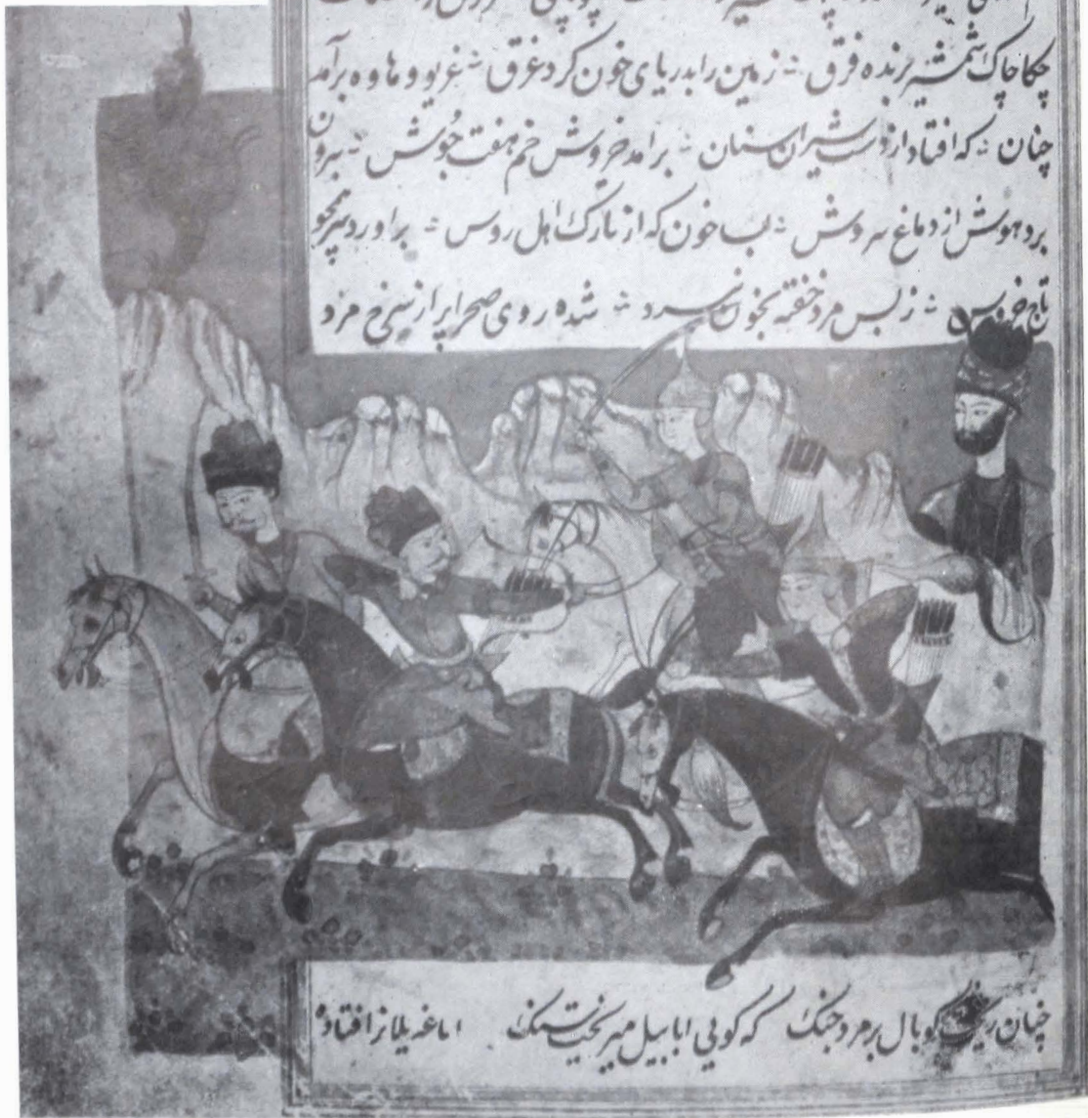 چکاچاک شمشیر برنده فرق ∴ زمین را بدریای خون کرد غرق ∴ غریو و ها وه برآمد
چنان ∴ که افتاد از دست شیران سنان ∴ برآمد خروش خم هفت جوش ∴ برون
برد هوش از دماغ سروش ∴ لب خون که از تارک اهل روس ∴ براورد سر همچو
تاج خروس ∴ ز بس مرد خفته بخون نبرد ∴ شده روی صحرا پر از سرخ مرد
چنان ریخت کوبال بر مرد جنک که کویی ابابیل میریخت سنک افتاده